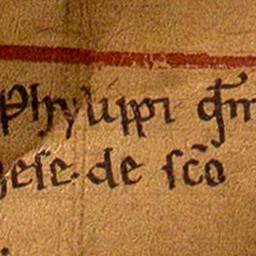 Phylippi q̄m
ese. de sc̄o